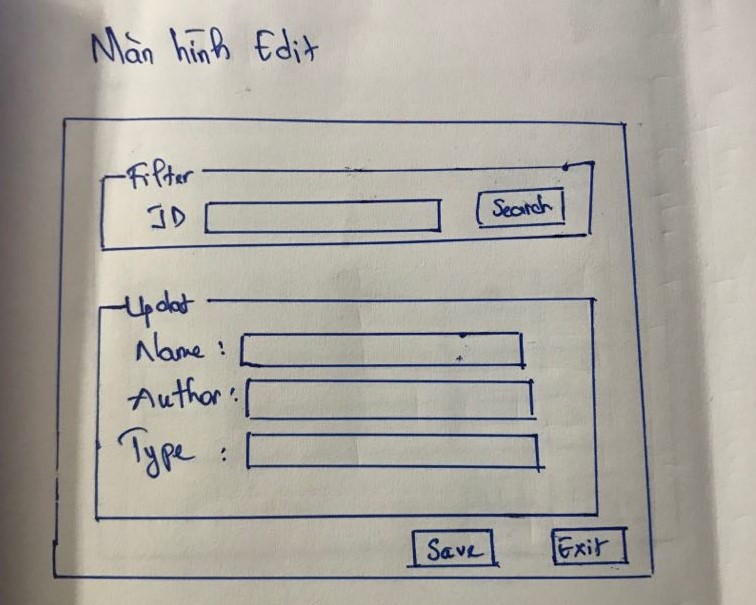 Màn hình Edit
Filter
ID Search
Updat
Name :
Author :
Type :
Save Exit